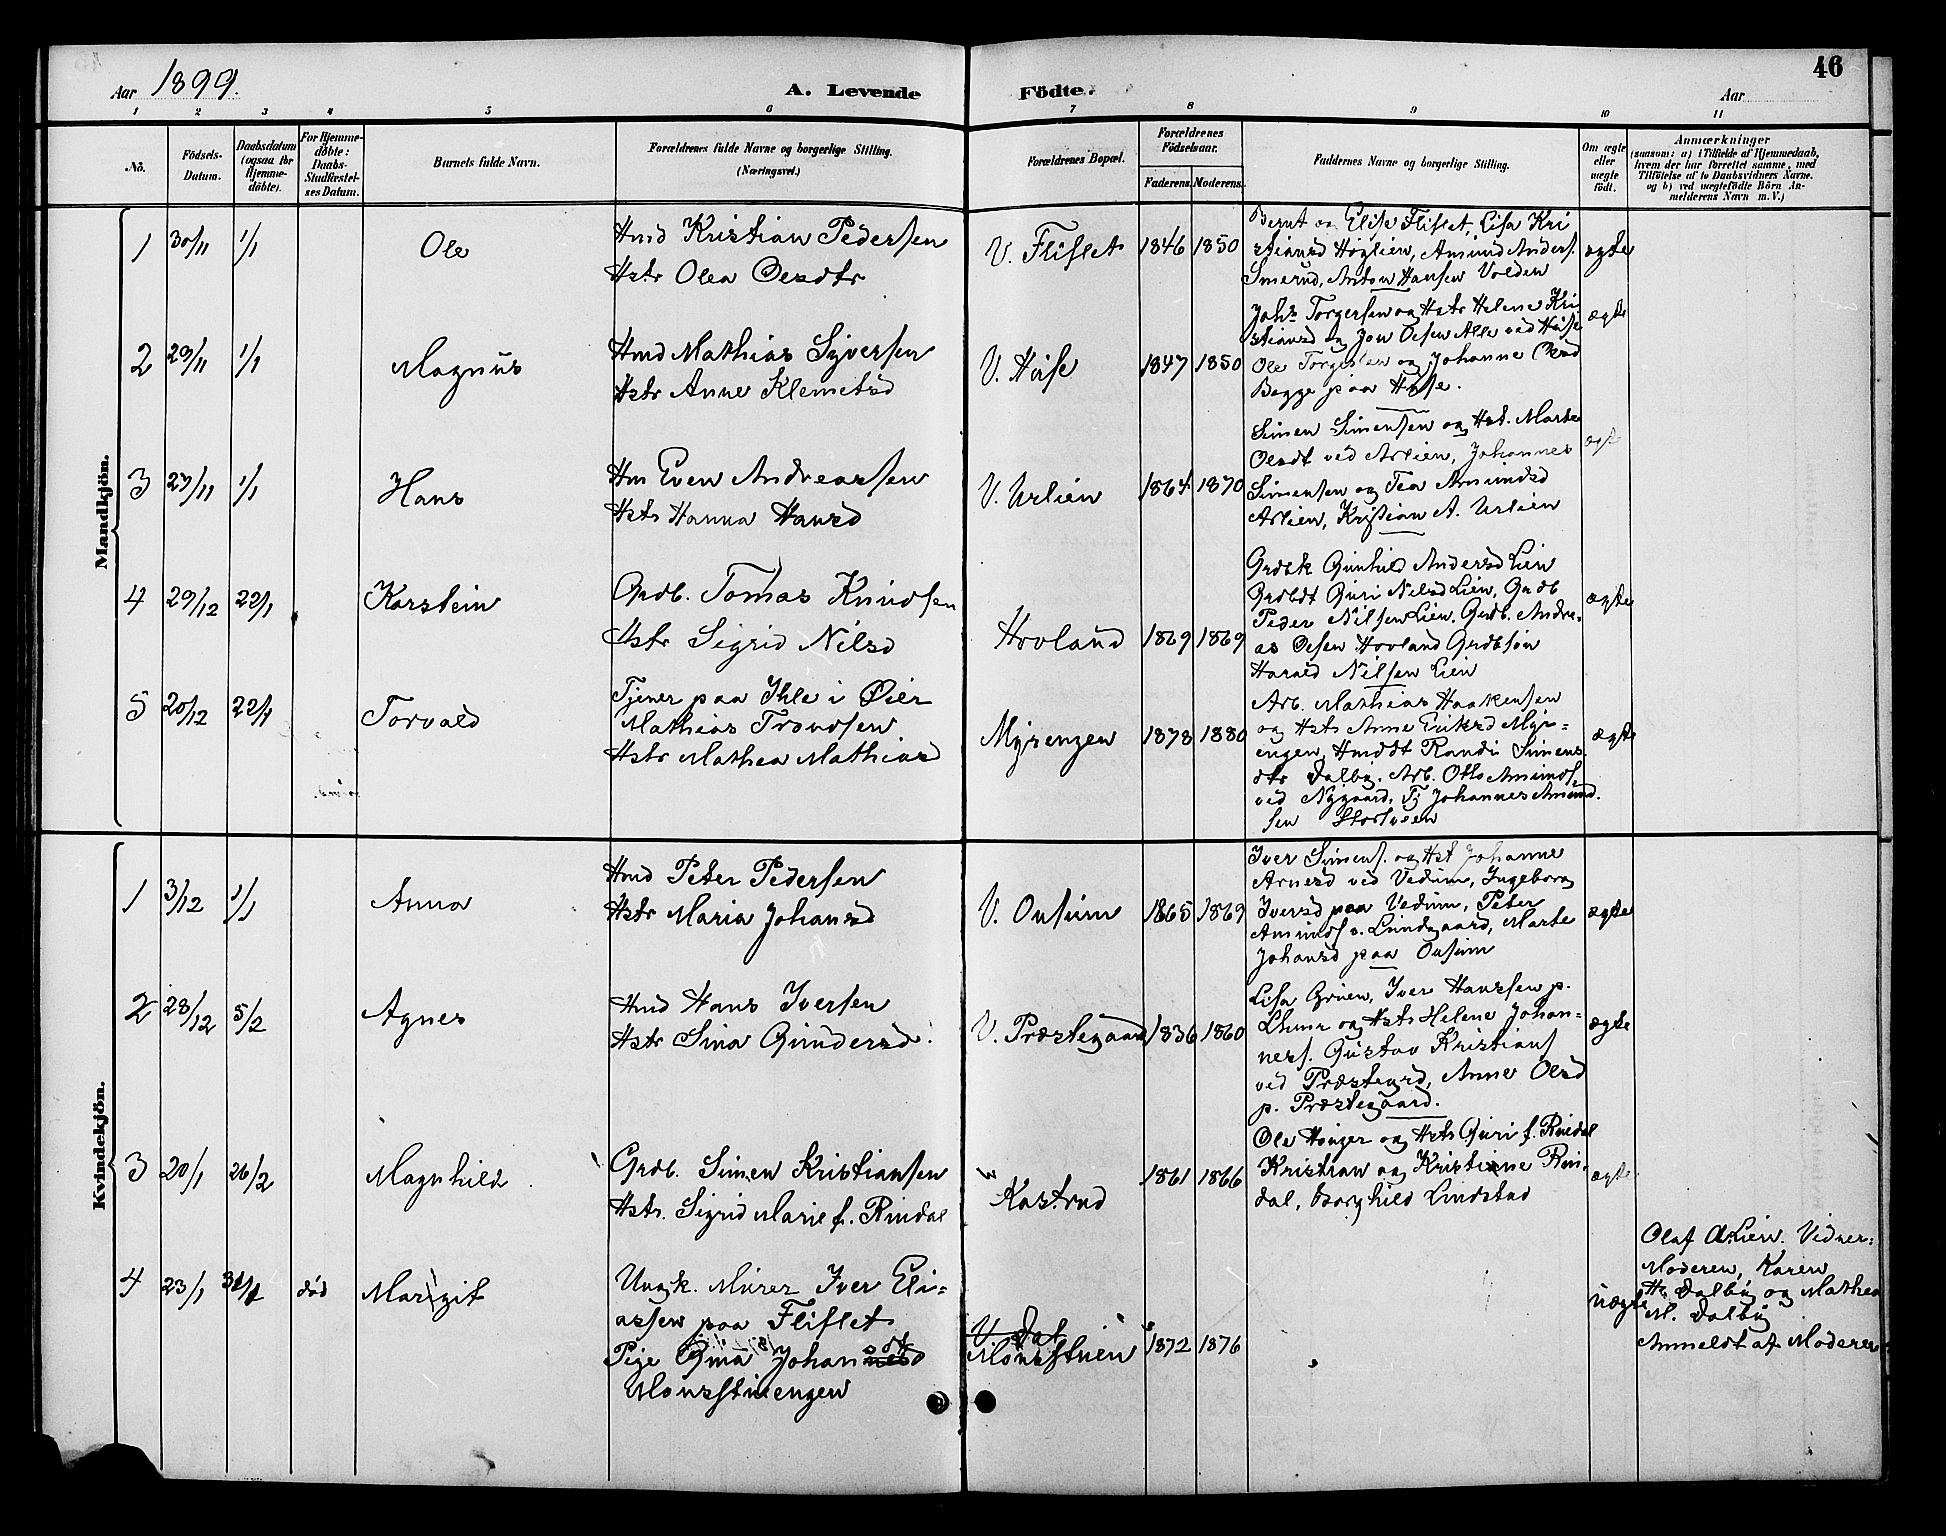 Aar 1899.
A. Levende Födte.
46
Aar
1 2 3 4 5 6 7 8 9 10 11
No.
Födsels-Datum.
Daabsdatum (ogsaa for Hjemme-döbte).
For Hjemme-döbte: Daabs-Stadfæstel-ses Datum.
Barnets fulde Navn.
Forældrenes fulde Navne og borgerlige Stilling. (Næringsvei.)
Forældrenes Bopæl.
Forældrenes Födselsaar.
Faderens. Moderens.
Faddernes Navne og borgerlige Stilling.
Om ægte eller uægte født.
Anmærkninger
(saasom: a) i Tilfælde af Hjemmedaab,
hvem der har forrettet samme, med
Tilföielse af to Daabsvidners Navne.
og b) ved uægtefödte Börn An-
melderens Navn m. V.)
Mandkjön.
1 30/11 1/1 Ole
Hmd Kristian Pedersen
Hstr Olea Olesdtr
V. Fliflet 1846 1850
Bernt og Elise Fliflet, Lisa Kri
stiansd Höglien, Amund Anders.
Smerud, Anton Hansen Volden
ægte
2 29/11 1/1 Magnus
Hmd Mathias Syversen
Hstr Anne Klemetsd
V. Haße 1847 1850
Johs Torgersen og Hstr Helene Kri
stiansd og Jon Olsen Alle ved
Ole Torgersen og Johanne Olesd
Begge paa
ægte
3 27/11 1/1 Hans
Hm Even Andreassen
Hstr Hanna Hansd
V. Urlien 1864 1870
Simen Simensen og Hst. Marte
Olesdt ved Arlien, Johannes
Simensen og Tea Amundsd
Arlien, Kristian A. Urlien
ægt
4 29/12 22/1 Karstein
Grdb. Tomas Knudsen
Hstr Sigrid Nilsd
Hovland 1869 1869
Grdbk Gunhild Andersd Lien
Grdbdt Guri Nilsd Lien, Grdb
Peder Nilsen Lien. Grdb. Andre-
as Olsen Hovland Grdbsön
Harald Nilsen Lien
ægte
5 20/12 22/1 Torvald
Tjener paa Ihle i Öier
Mathias Trondsen
Hstr Mathea Mathiasd
Myrengen 1878 1880
Arb. Mathias Haakensen
og Hstr Anne Eriksd Myr-
engen, Hmddt Randi Simens
dtr Dalby. Arb. Otto Amunds.
ved Nygaard, Tj Johannes Amund.
sen Storsveen
ægte
Kvindekjön.
1 3/12 1/1 Anna
Hmd Peter Pedersen
Hstr Maria Johansd
V. Ousum 1865 1869
Iver Simens. og Hst Johanne
Arnesd ved Vedum, Ingeborg
Iversd paa Vedum, Peter
Amunds v. Lundgaard, Marte
Johansd paa Ousum
ægte
2 28/12 5/2 Agnes
Hmd Hans Iversen
Hstr Sina Gundersd.
V. Præstegaard 1836 1860
Lisa Gruen, Iver Hanssen p.
og Hstr Helene Johan-
nes. Gustav Kristians
ved Præstegrd, Anne Olesd
p. Præstegaard.
ægte
3 20/1 26/2 Magnhild
Grdb. Simen Kristiansen
Hstr. Sigrid Marie f. Rindal
Kastrud 1861 1866
Ole Honger og Hstr Guri f. Rindal
Kristian og Kristiane Rin-
dal, Borghild Lindstad
ægte
4 23/1 død Margit
Ungk. Murer Iver Eli-
assen paa Fliflet
Pige Gina Johannesd
Monsstuengen
V. Dal
Monsstuen 1872 1876
uægte
Olaf Lien. Vidner:
Moderen, Karen
H. Dalby og Mathea
M. Dalby
Anmeldt af Moderen